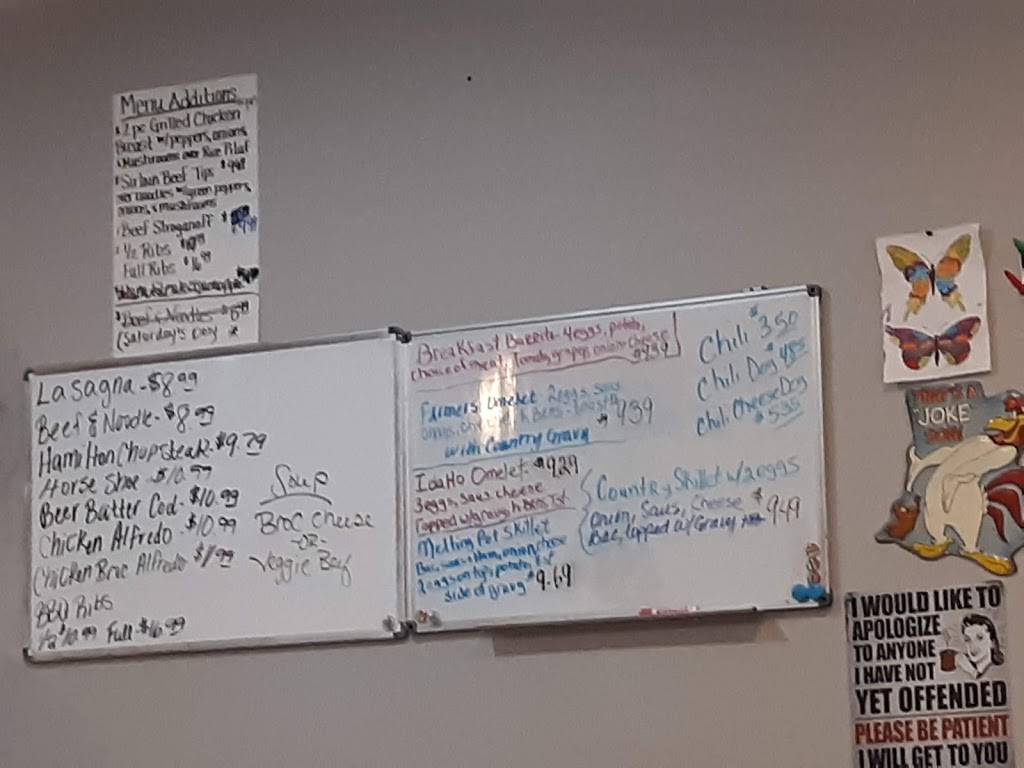 Menu Additions
2 pc Grilled Chicken
Breast w/peppers, onions,
& Mushrooms over Rice Pilaf
Sirloin Beef Tips
over Noodles w/green peppers,
onions, & mushrooms
Beef Stroganoff
1/2 Ribs
Full Ribs $16.99
Beef & Noodles
(Saturday's Only
Lasagna - $8.99
Beef & Noodle - $8.99
Hamilton Chopsteak $9.79
Horse Shoe - $10.99
Beer Batter Cod - $10.99
Chicken Alfredo - $10.99
Chicken Broc Alfredo - $11.99
BBQ Ribs
1/2 $10.99 Full - $16.99
Soup
Broc Cheese
-OR-
Veggie Beef
Breakfast Burrito - 4 eggs, potato,
choice of meat, Tomato, gr pep, onion, Cheese
Farmers Omelet 2 eggs, saus
$9.39
with Country Gravy
Idaho Omelet $9.29
3 eggs, saus, cheese
Topped w/gravy, h Bns, Tst
Melting Pot Skillet
Bac, saus, Ham, onion, chese
2 eggs on top, potato, Tst
side of gravy $9.69
Chili $3.50
Chili Dog $4.85
Chili Cheese Dog
$5.35
Country Skillet w/2 eggs
onion, Saus, Cheese
Bac, topped w/Gravy $9.49
JOKE
I WOULD LIKE TO
APOLOGIZE
TO ANYONE
I HAVE NOT
YET OFFENDED
PLEASE BE PATIENT
I WILL GET TO YOU